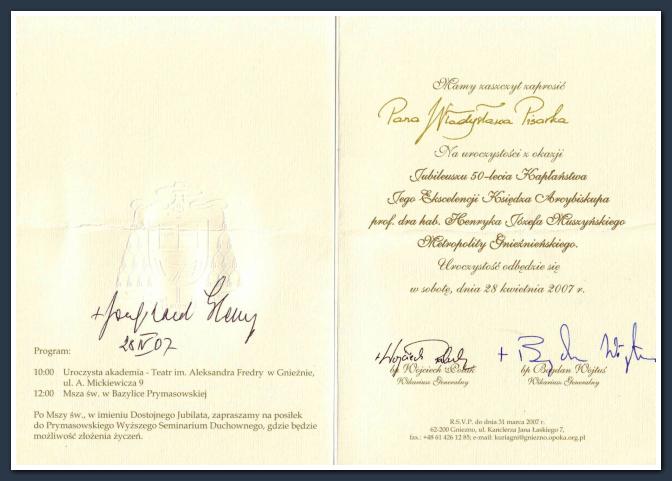 28 IV 07
Program:
10:00 Uroczysta akademia - Teatr im. Aleksandra Fredry w Gnieźnie,
ul. A. Mickiewicza 9
12:00 Msza św. w Bazylice Prymasowskiej
Po Mszy św., w imieniu Dostojnego Jubilata, zapraszamy na posiłek
do Prymasowskiego Wyższego Seminarium Duchownego, gdzie będzie
możliwość złożenia życzeń.
Mamy zaszczyt zaprosić
Pana Władysława Pisarka
Na uroczystości z okazji
Jubileuszu 50-lecia Kapłaństwa
Jego Ekscelencji Księdza Arcybiskupa
prof. dra hab. Henryka Józefa Muszyńskiego
Metropolity Gnieźnieńskiego.
Uroczystość odbędzie się
w sobotę, dnia 28 kwietnia 2007 r.
+ Wojciech Polak + Bogdan Wojtuś
bp Wojciech Polak bp Bogdan Wojtuś
Wikariusz Generalny Wikariusz Generalny
R.S.V.P. do dnia 31 marca 2007 r.
62-200 Gniezno, ul. Kanclerza Jana Łaskiego 7,
fax.: +48 61 426 12 85; e-mail: kuriagni@gniezno.opoka.org.pl